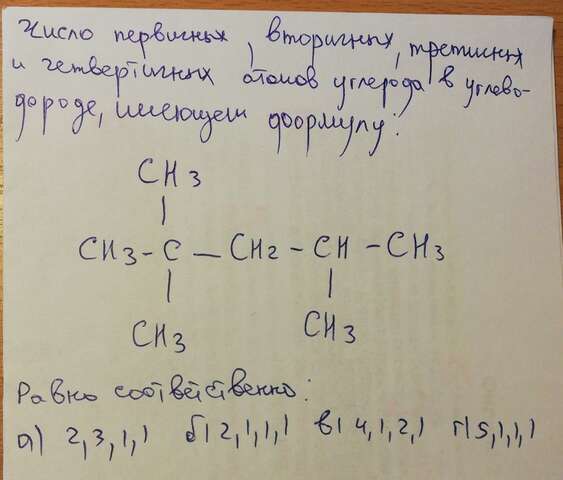 Число первичных, вторичных, третичных
и четвертичных атомов углерода в углево-
дороде, имеющем формулу:
CH3
|
CH3 - C - CH2 - CH - CH3
| |
CH3 CH3
Равно соответственно:
а) 2,3,1,1 б) 2,1,1,1 в) 4,1,2,1 г) 5,1,1,1